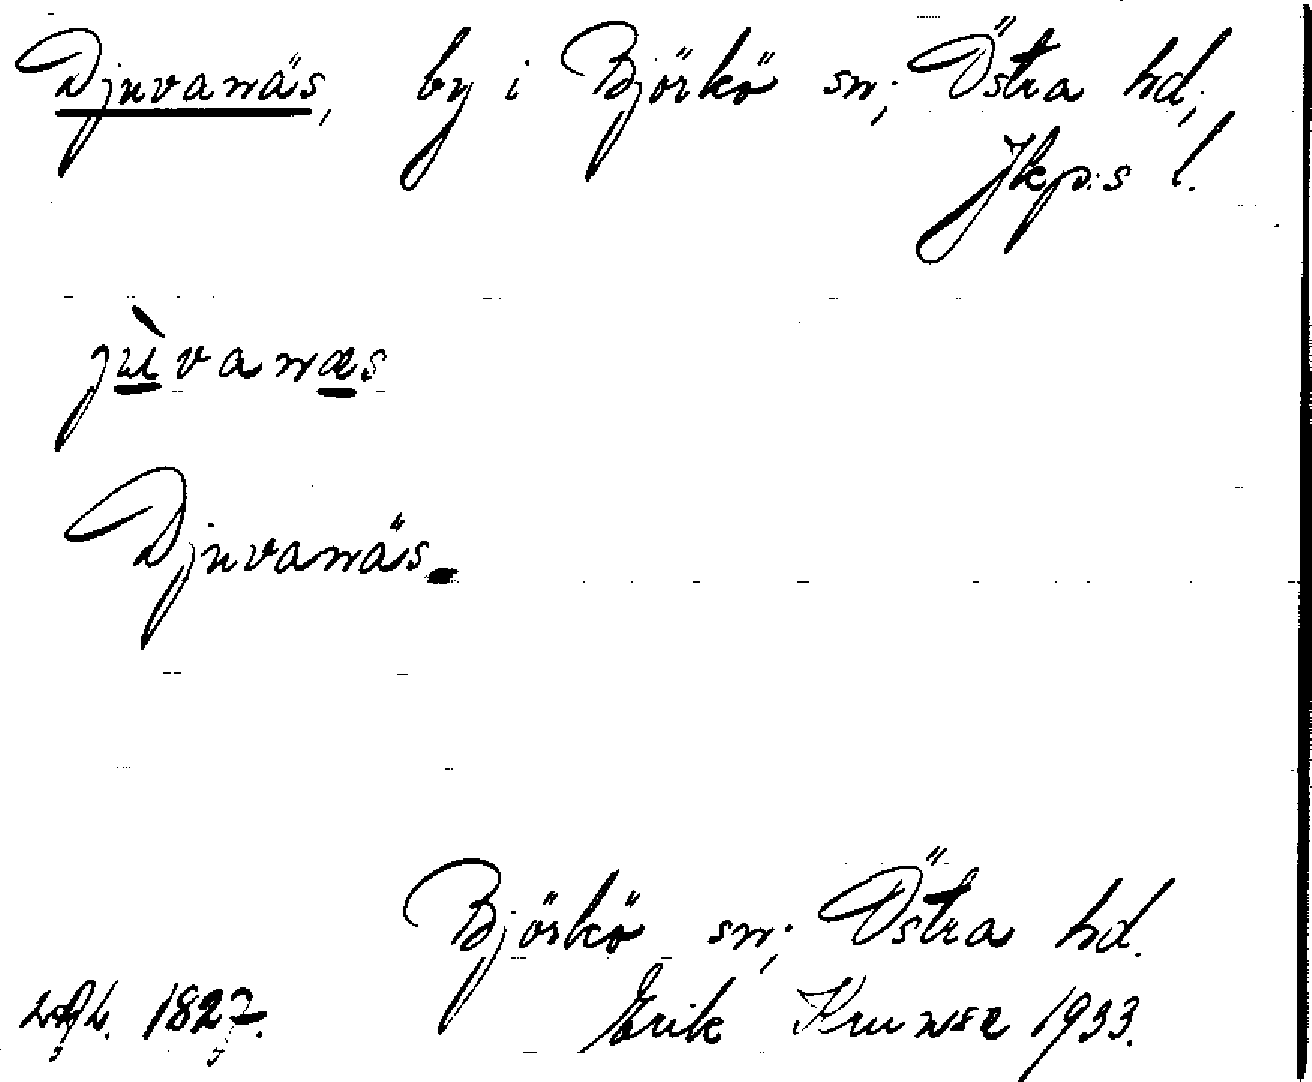 Djuvanäs, by i Björkö sn; Östra hd;
Jkp:s l.
jùvanæs
Djuvanäs.
Björkö sn; Östra hd.
1827. Erik Kruuse 1933.